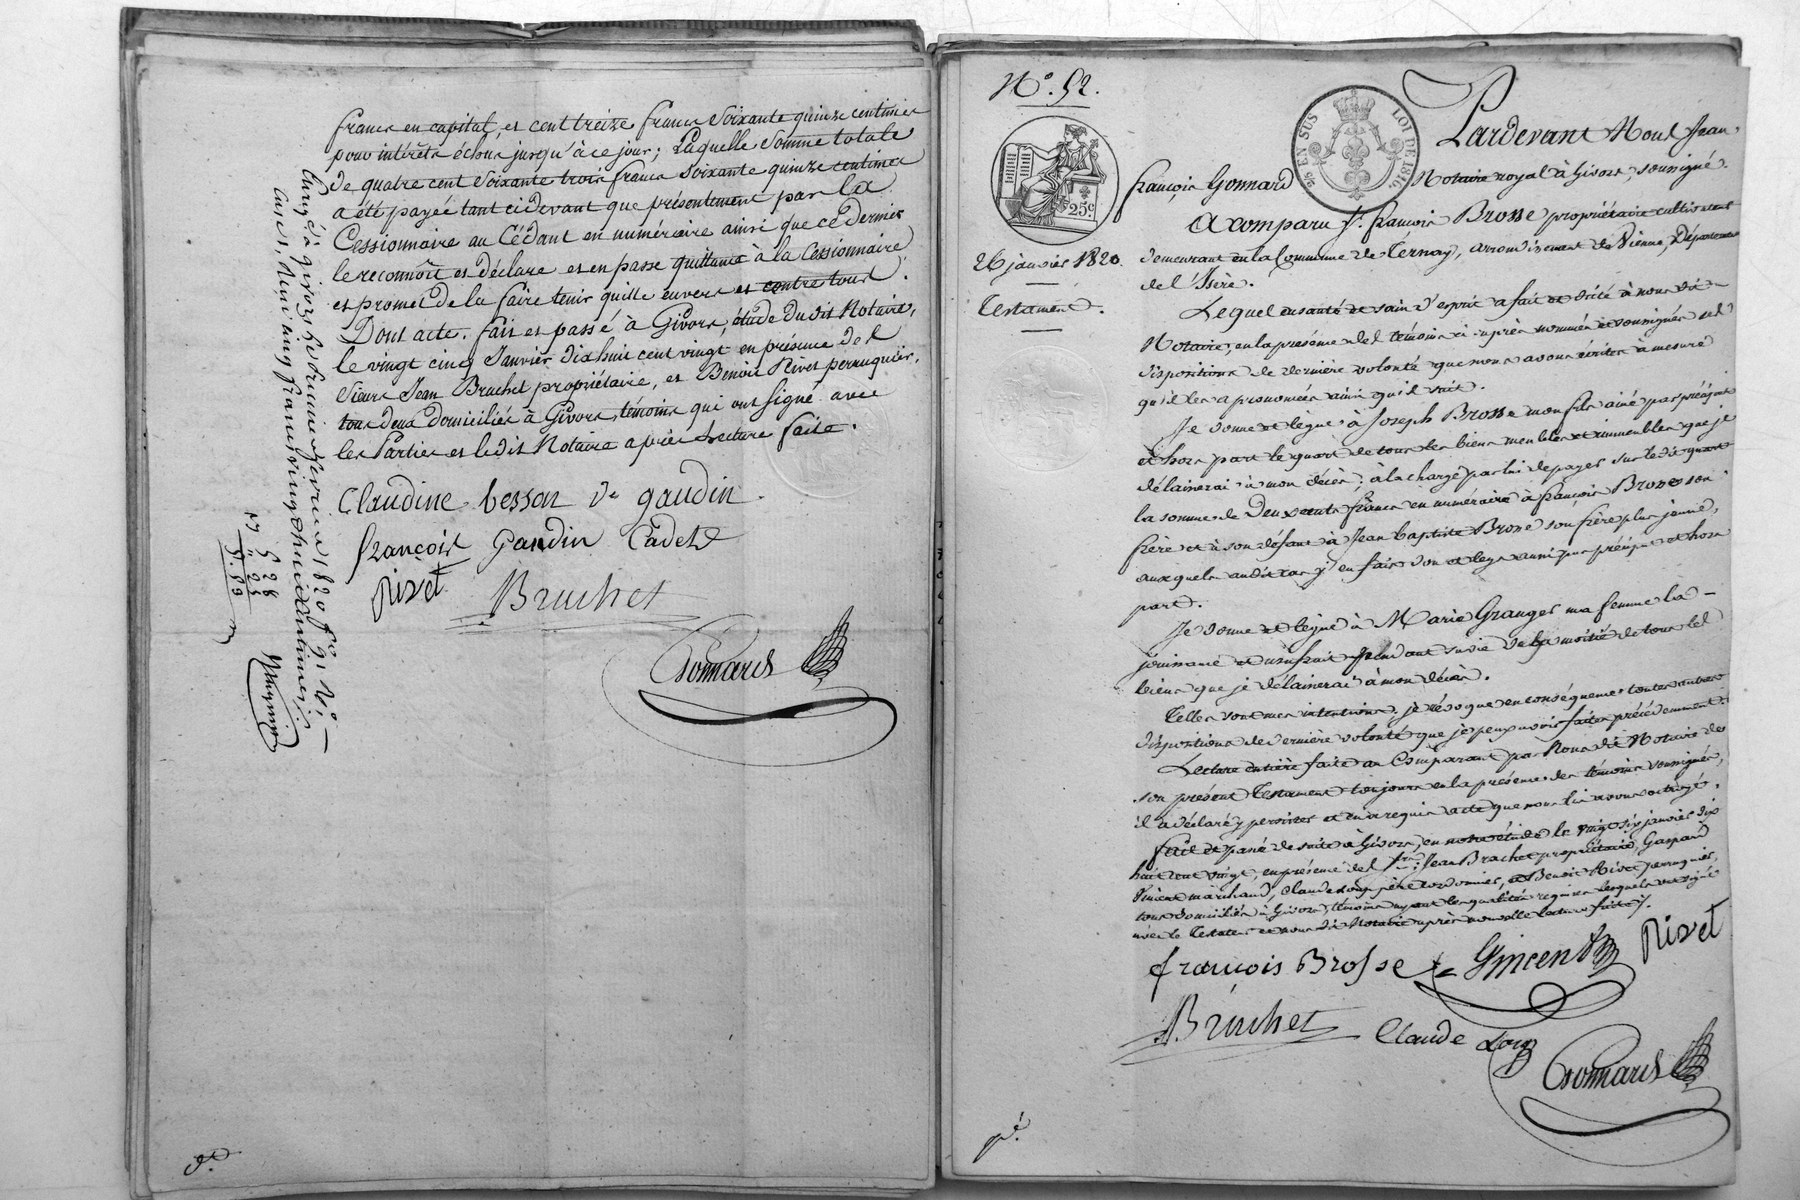 francs en capital, et cent treize francs soixante quinze centimes
pour intérêts échus jusqu'à ce jour; Laquelle somme totale
de quatre cent soixante trois francs soixante quinze centimes
a été payée tant cidevant que présentement par la
Cessionnaire au Cédant en numéraire ainsi que ce dernier
le reconnôit et déclare et en passe quittance à la Cessionnaire
et promet de la faire tenir quitte envers et contre tous.
Dont acte. fait et passé à Givors, étude du dit Notaire,
le vingt cinq Janvier dix huit cent vingt en présence de S
sieurs Jean Bruchet propriétaire, et Benoit Rivet perruquier,
tous deux domiciliés à Givors, témoins qui ont signé avec
les Parties et le dit Notaire après Lecture faite.
Claudine besson Ve gaudin.
françois Gaudin Cadet
Rivet Bruchet
Gonnard
à givors février 1820 fo 91
cinq francs vingt huit centimes
5 28
5. 89
No. 52.
25 EN SUS LOI DE 1816
25c
26 janvier 1820.
Testament.
Pardevant Nous Jean-
françois Gonnard Notaire royal à Givors, soussigné.
A comparu Sr. françois Brosse propriétaire cultivateur
demeurant en la Commune de Ternay, arrondissement de Vienne, Département
de l'Isère.
Lequel en santé et sain d'esprit a fait et dicté à nous dit -
Notaire, en la présence des témoins ci-après nommés et soussignés ses
dispositions de dernière volonté que nous avons écrites à mesure
qu'il les a prononcées ainsi qu'il suit.
Je donne et lègue à Joseph Brosse mon fils ainé par préciput
et hors part le quart de tous les biens meubles et immeubles que je
délaisserai à mon décès; à la charge par lui de payer sur le dit quart
la somme de Deux cents francs en numéraire à françois Brosse son
frère et à son défaut à Jean baptiste Brosse son frère plus jeune,
auxquels audit cas j'en fais don et legs aussi par préciput et hors
part.
Je donne et lègue à Marie Granger ma femme la -
jouissance et usufruit pendant sa vie de la moitié de tous les
biens que je délaisserai à mon décès.
Telles sont mes intentions, je révoque en conséquence toutes autres
dispositions de dernière volonté que je peux avoir faites précédemment.
Lecture entière faite au Comparant par Nous dit Notaire de
son présent Testament toujours en la présence des témoins soussignés,
il a déclaré y persister et en a requis acte que nous lui avons octroyé.
fait et passé de suite à Givors, en notre étude le vingt six janvier dix
huit cent vingt, en présence des Srs Jean Bruchet propriétaire, Gaspard
Vincent marchand, Claude Loup père cordonnier, et Benoit Rivet perruquier,
tous domiciliés à Givors, témoins ayant les qualités requises lesquels ont signé
avec le Testateur et nous dit Notaire après nouvelle lecture faite.
françois Brosse Gincent Rivet
Bruchet Claude Loup
Gonnard